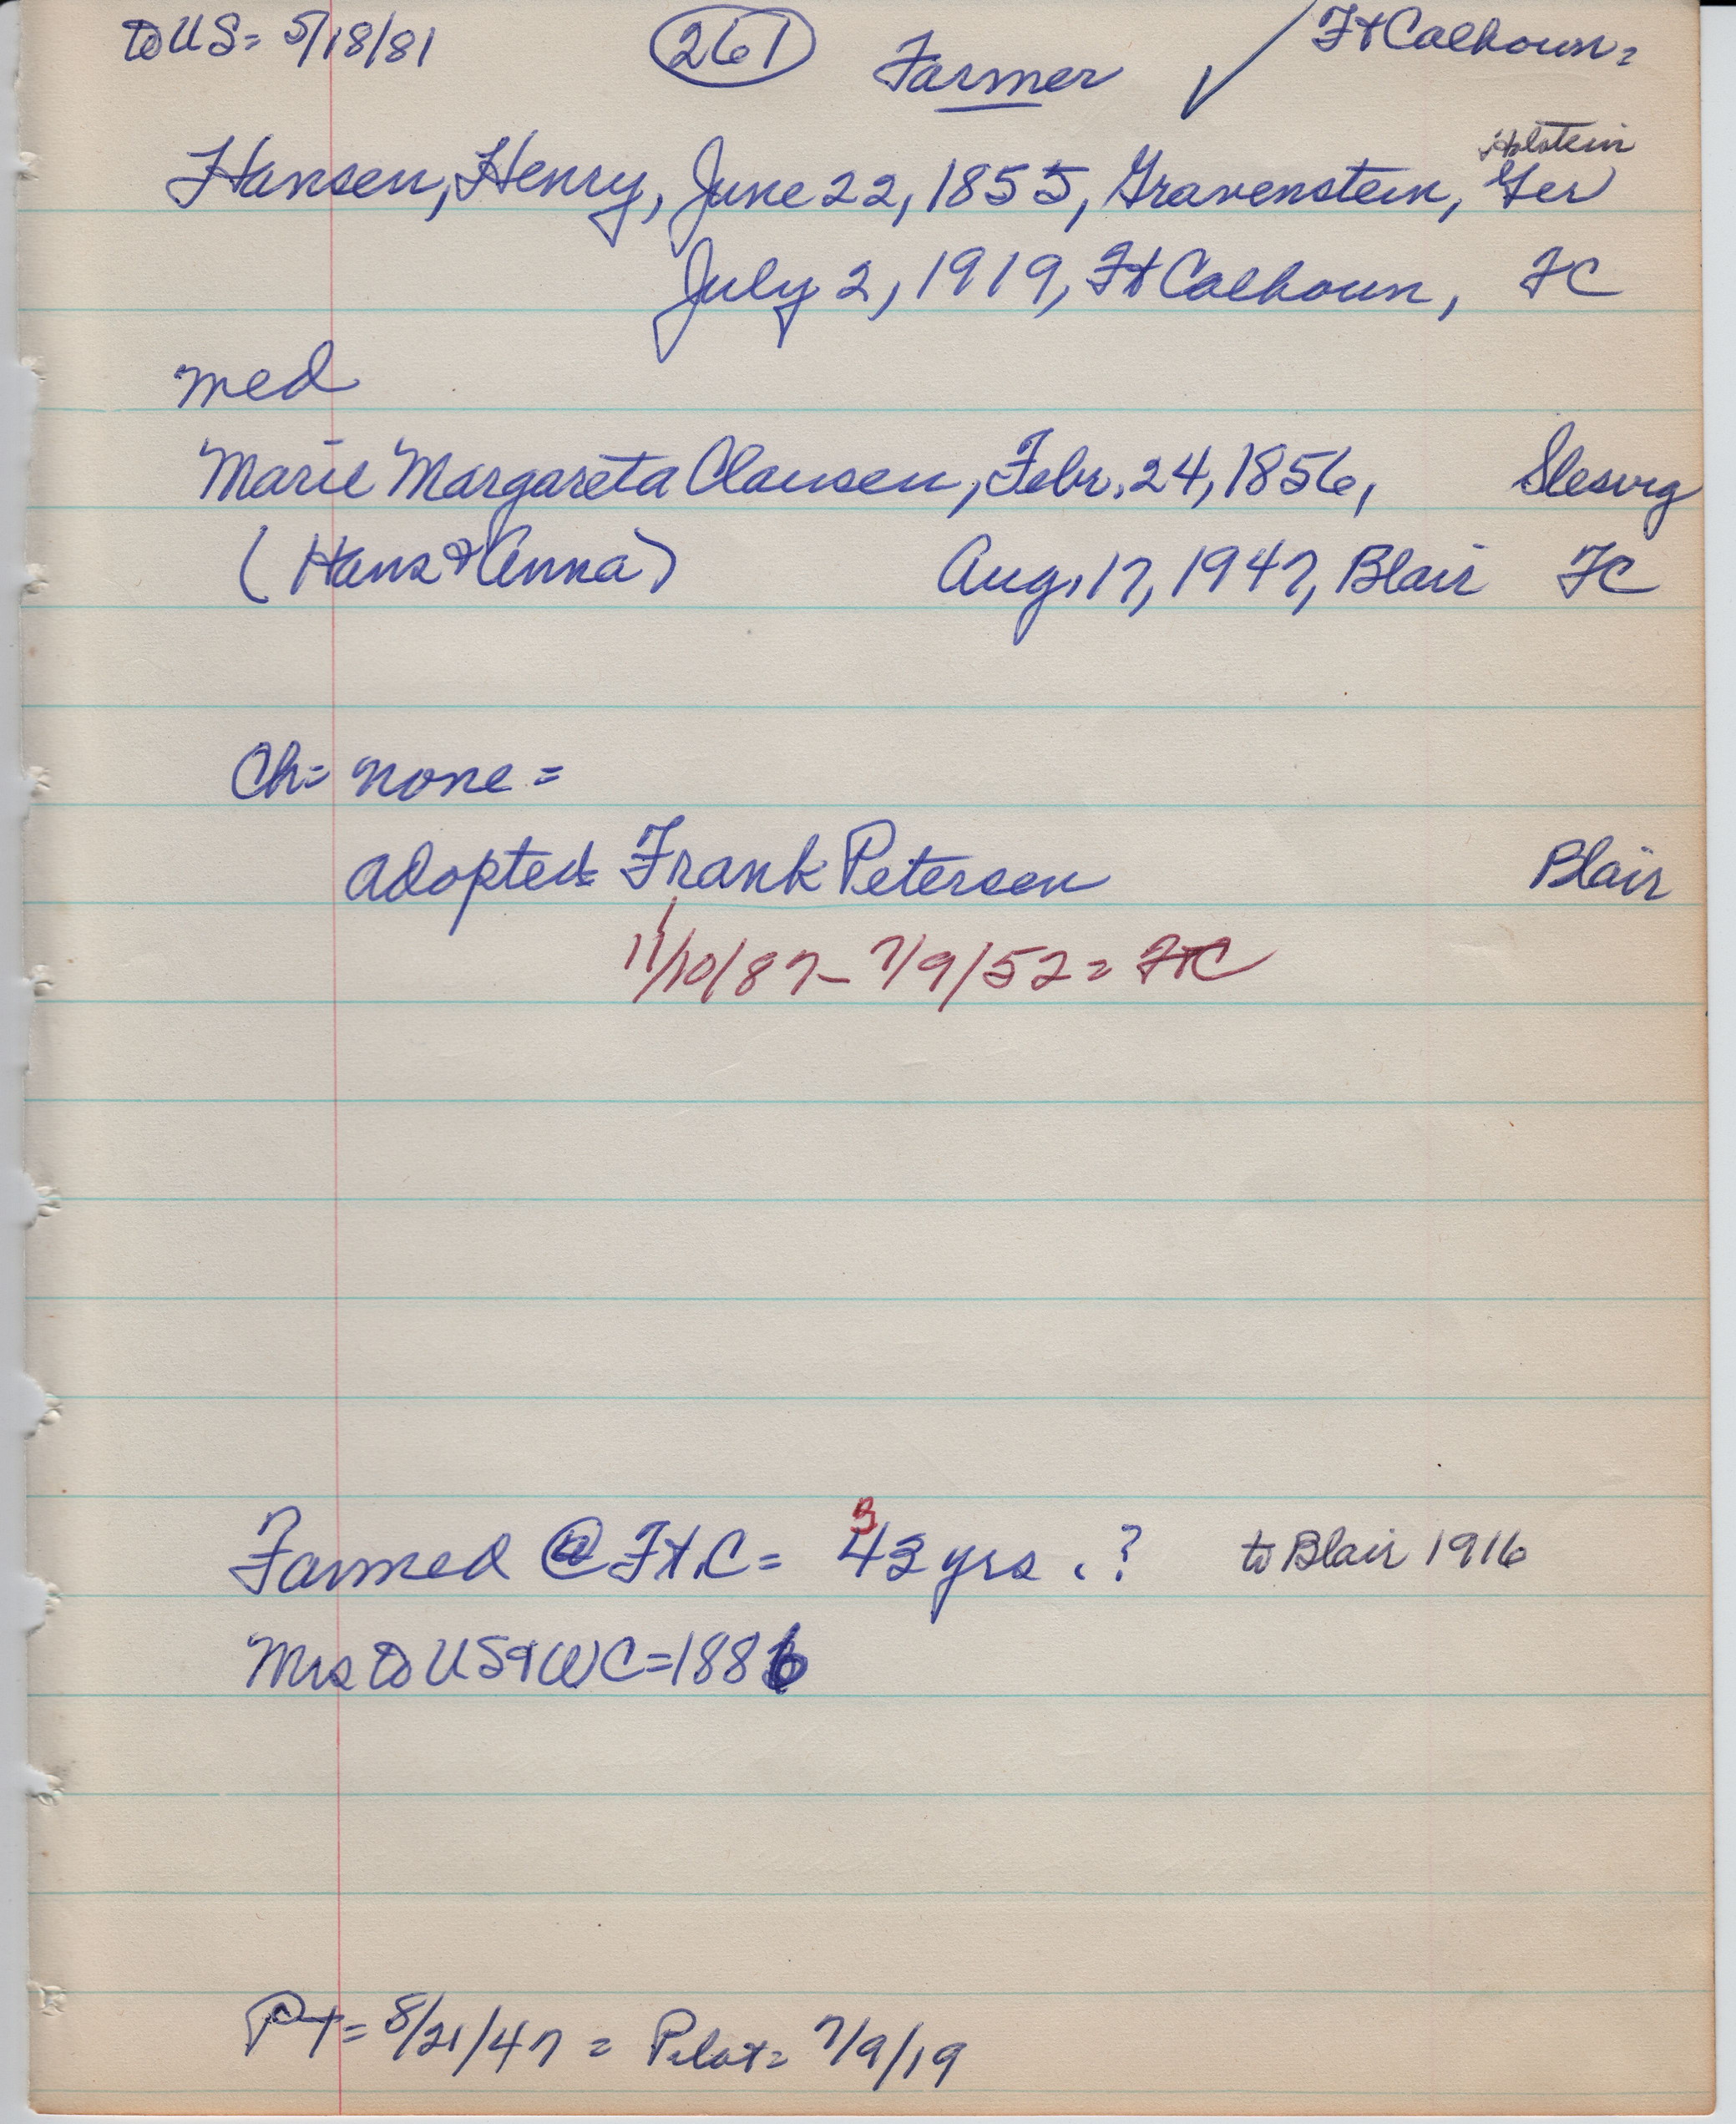 to US = 5/18/81 261 Farmer ✓ Ft Calhoun =
Holstein
Hansen, Henry, June 22, 1855, Gravenstein, Ger
July 2, 1919, Ft Calhoun, FC
med
Marie Margareta Clausen, Febr. 24, 1856, Slesvig
(Hans & Anna) Aug. 17, 1947, Blair FC
Ch = none =
adopted = Frank Petersen Blair
11/10/87 - 7/9/52 = FtC
3
Farmed @ Ft C = 43 yrs. ? to Blair 1916
Mrs to US & WC = 1886
PT = 8/21/47 = Pilot = 7/9/19